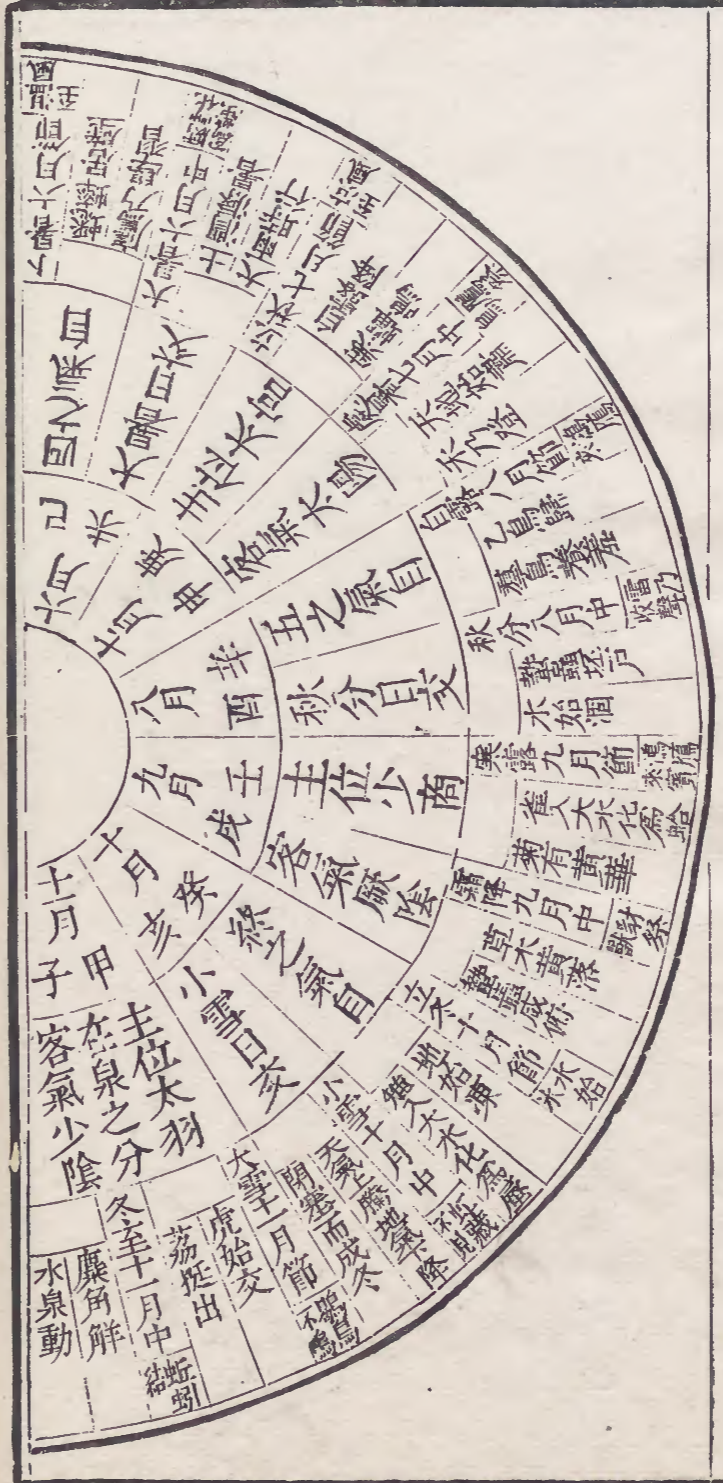 六月
己未
七月
庚申
八月
辛酉
九月
壬戌
十月
癸亥
十一月
甲子
四之氣自
大暑日交
主位太宮
客氣太陽
五之氣自
秋分日交
主位少商
客氣厥陰
終之氣自
小雪日交
主位太羽
在泉之分
客氣少陰
小暑六月節
溫風至
蟋蟀居壁
鷹乃學習
大暑六月中
土潤溽暑
大雨時行
立秋七月節
涼風至
白露降
寒蟬鳴
處暑七月中
鷹祭鳥
天地始肅
禾乃登
白露八月節
鴻鴈來
乙鳥歸
羣鳥養羞
秋分八月中
雷乃收聲
蟄蟲坯戶
水始涸
寒露九月節
鴻鴈來賓
雀入大水化爲蛤
菊有黃華
霜降九月中
豺祭獸
草木黃落
蟄蟲咸俯
立冬十月節
水始冰
地始凍
雉入大水化爲蜃
小雪十月中
虹藏不見
天氣上騰地氣下降
閉塞而成冬
大雪十一月節
鶡鳥不鳴
虎始交
荔挺出
冬至十一月中
蚯蚓結
麋角解
水泉動